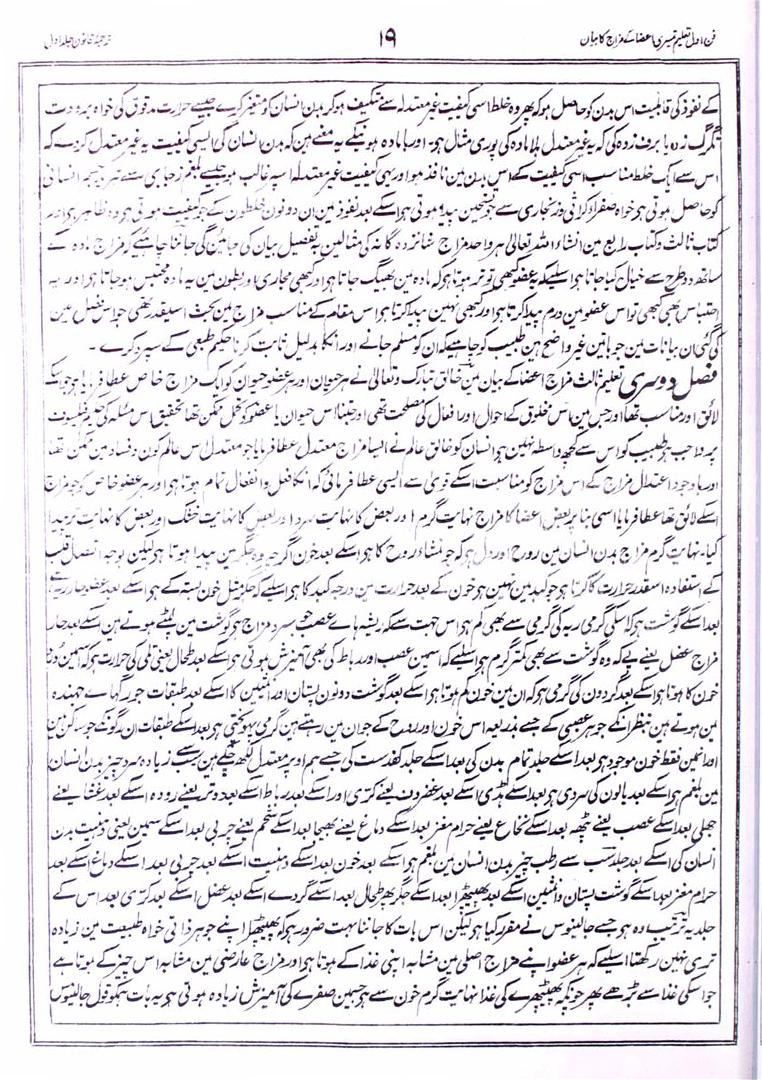 فن اول تعلیم تیسری اعضا کے مزاج کا بیان
۱۹
ترجمۂ قانون جلد اول
کے نفوذ کی قابلیت اس بدن کو حاصل ہو کہ پھر وہ خلط اسی کیفیت غیر معتدلہ سے متکیف ہو کر بدن انسان کو متغیر کرے جیسے حرارت مدقوق کی خواہ برودت
زدہ یا برف زدہ کی کہ یہ غیر معتدل بلا مادہ کی پوری مثال ہی۔ اور با مادہ ہونیکے یہ معنے ہین کہ بدن انسان کی ایسی کیفیت یہ غیر معتدل کر دے کہ
اس سے ایک خلط مناسب اسی کیفیت کے اس بدن مین نافذ ہو اور یہی کیفیت غیر معتدلہ اسپہ غالب ہو جیسے بلغم زجاجی سے تبرید جسم انسانی
کو حاصل ہوتی ہی خواہ صفراء کراثی و زنجاری سے جو تسخین پیدا ہوتی ہی اسکے بعد نفوذ مین ان دونون خلطون کے جو کیفیت ہوتی ہی وہ ظاہر ہی اور
کتاب ثالث و کتاب رابع مین انشاء اللہ تعالیٰ ہر واحد مزاج شانزدہ گانہ کی مثالین بہ تفصیل بیان کی جائین گی جاننا چاہیے کہ مزاج مادہ کے
ساتھ دو طرح سے خیال کیا جاتا ہی اسلیے کہ یہ عضو کبھی تو تر ہوتا ہی کہ مادہ مین بھیگ جاتا ہی اور کبھی مجاری اور بطون مین یہ مادہ محتبس ہو جاتا ہی اور یہ
احتباس بھی کبھی تو اس عضو مین ورم پیدا کرتا ہی اور کبھی نہین پیدا کرتا ہی اس مقام کے مناسب مزاج مین بحث اسیقدر تھی جو اس فصل مین
کی گئی ان بیانات مین جو باتین غیر واضح ہین طبیب کو چاہیے کہ ان کو مسلم جانے اور انکا بدلیل ثابت کرنا حکیم طبعی کے سپرد کرے ۔
فصل دوسری تعلیم ثالث مزاج اعضا کے بیان مین خالق تبارک و تعالیٰ نے ہر حیوان اور ہر عضو حیوان کو ایک مزاج خاص عطا فرمایا ہی جو اسکے
لائق اور مناسب تھا اور جس مین اس مخلوق کے احوال اور افعال کی مصلحت تھی اور جتنا اس حیوان یا عضو کو تحمل ممکن تھا تحقیق اس مسئلہ کی حکیم فیلسوف
پر واجب ہی طبیب کو اس سے کچھ واسطہ نہین ہی انسان کو خالق عالم نے ایسا مزاج معتدل عطا فرمایا جو معتدل اس عالم کون و فساد مین ممکن تھا
اور باوجود اعتدال مزاج کے اس مزاج کو مناسبت اسکے قویٰ سے ایسی عطا فرمائی کہ انکا فعل و انفعال تمام ہوتا ہی اور ہر عضو خاص کو جو مزاج
اسکے لائق تھا عطا فرمایا اسی بنا پر بعض اعضا کا مزاج نہایت گرم اور بعض کا نہایت سرد اور بعض کا نہایت خشک اور بعض کا نہایت تر پیدا
کیا۔ نہایت گرم مزاج بدن انسان مین روح اور دل ہی کہ جو منشاء روح کا ہی اسکے بعد خون اگرچہ وہ جگر مین پیدا ہوتا ہی لیکن بوجہ اتصال قلب
کے استفادہ اسقدر حرارت کا کرتا ہی جو کبد مین نہین ہی خون کے بعد حرارت مین درجہ کبد کا ہی اسلیے کہ جگر مثل خون بستہ کے ہی اسکے بعد عضو حار ریہ ہی
بعد اسکے گوشت ہی کہ اسکی گرمی ریہ کی گرمی سے بھی کم ہی اس جہت سے کہ ریشہ ہاے عصب جو سرد مزاج ہی گوشت مین لپٹے ہوتے ہین اسکے بعد حار
مزاج عضل یعنے پے کہ وہ گوشت سے بھی کمتر گرم ہی اسلیے کہ اسمین عصب اور رباط کی بھی آمیزش ہوتی ہی اسکے بعد طحال یعنی تلی کی حرارت ہی کہ اسمین دُرد
خون کا ہوتا ہی اسکے بعد گردون کی گرمی ہی کہ ان مین خون کم ہوتا ہی اسکے بعد گوشت دونون پستان اور انثیین کا اسکے بعد طبقات جو رگہاے جہندہ
مین ہوتے ہین نظر انکے جوہر عصبی کے جسے بذریعہ اس خون اور روح کے جو ان مین رہتے ہین گرمی پہونچتی ہی بعد اسکے طبقات ان رگونکے جو ساکن ہین
اور انمین فقط خون موجود ہی بعد اسکے جلد تمام بدن کی بعد اسکے جلد کفدست کی جسے ہم اوپر معتدل لکھ چکے ہین سب سے زیادہ سرد چیز بدن انسان
مین بلغم ہی اسکے بعد بالون کی سردی ہی بعد اسکے ہڈی اسکے بعد غضروف یعنے کری اور اسکے بعد رباط اسکے بعد وتر یعنے رودہ اسکے بعد غشا یعنے
جھلی بعد اسکے عصب یعنے پٹھہ بعد اسکے نخاع یعنے حرام مغز بعد اسکے دماغ یعنے بھیجا بعد اسکے شحم یعنے چربی بعد اسکے سمین یعنی دہنیت بدن
انسان کی اسکے بعد جلد سب سے رطب چیز بدن انسان مین بلغم ہی اسکے بعد خون بعد اسکے دہنیت اسکے بعد چربی بعد اسکے دماغ اسکے بعد
حرام مغز بعد اسکے گوشت پستان و انثیین اسکے بعد پھیپھڑا بعد اسکے جگر پھر طحال بعد اسکے گردے اسکے بعد عضل اسکے بعد کری بعد اس کے
جلد یہ ترتیب وہ ہی جسے جالینوس نے مقرر کیا ہی لیکن اس بات کا جاننا بہت ضرور ہی کہ پھیپھڑا اپنے جوہر ذاتی خواہ طبیعت مین زیادہ
تری نہین رکھتا اسلیے کہ ہر عضو اپنے مزاج اصلی مین مشابہ اپنی غذا کے ہوتا ہی اور مزاج عارضی مین مشابہ اس چیز کے ہوتا ہے
جو اسکی غذا سے بڑھے پھر چونکہ پھیپھڑے کی غذا نہایت گرم خون سے ہی جسمین صفرے کی آمیزش زیادہ ہوتی ہی یہ بات ہمکو قول جالینوس